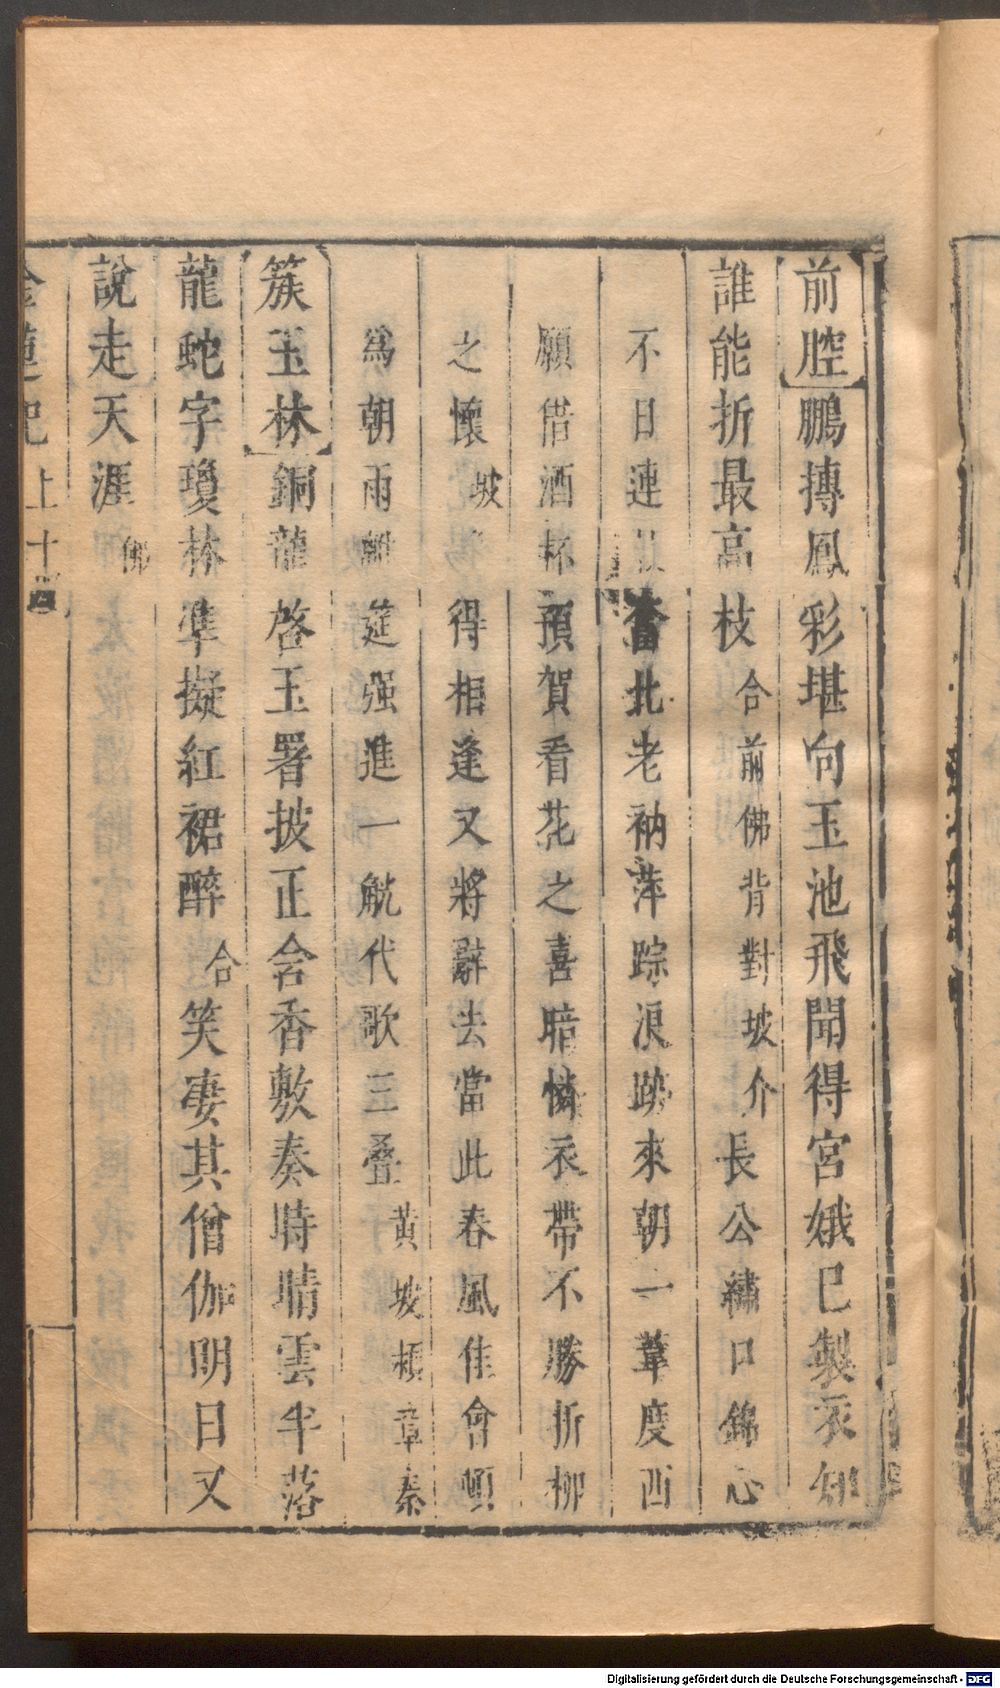 前腔鵬摶鳳彩堪向玉池飛聞得宮娥已製衣知
誰能折最高枝合前佛背對坡介長公繡口錦心
不日連 奮北老衲萍踪浪跡來朝一葦度西
願借酒杯預賀看花之喜暗憐衣帶不勝折柳
之懷坡得相逢又將辭去當此春風佳會頓
爲朝雨離筵强進一觥代歌三叠黄坡槓章秦
簇玉林銅龍啓玉署披正含香敷奏時晴雲半落
龍蛇字瓊林準擬紅裙醉合笑凄其僧伽明日又
說走天涯佛
金蓮記上十四
Digitalisierung gefördert durch die Deutsche Forschungsgemeinschaft - DFG